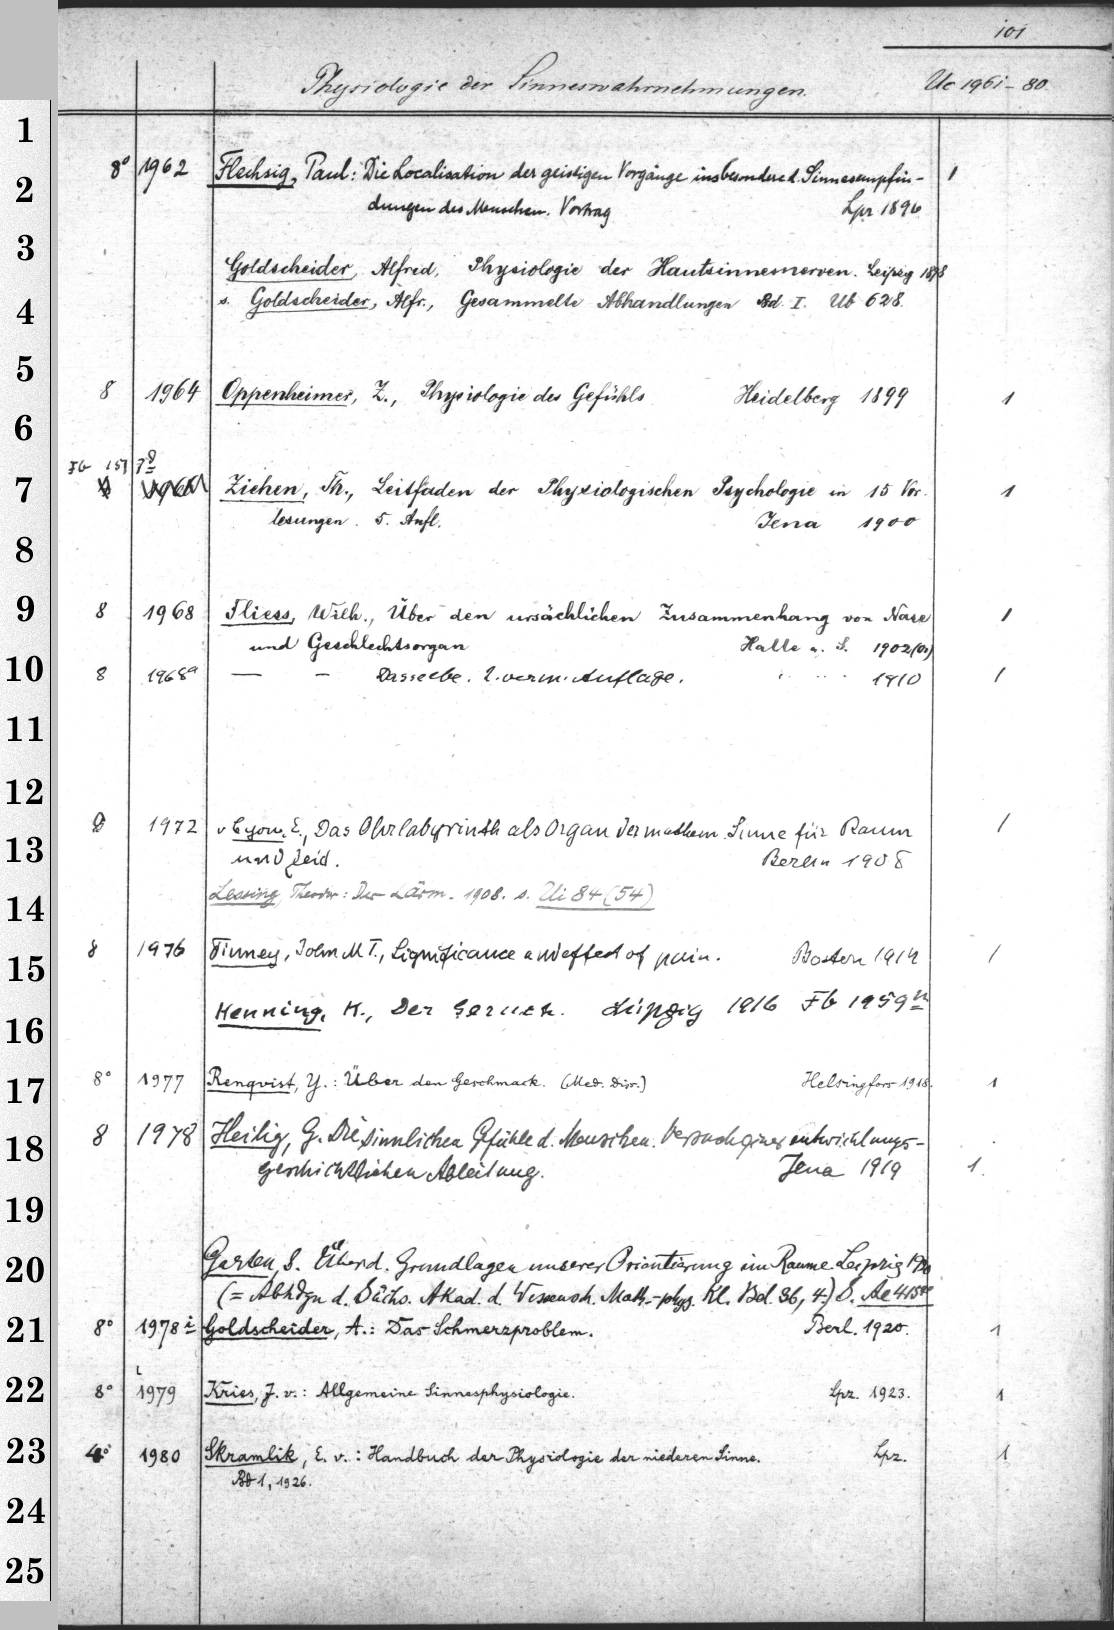 101
Physiologie der Sinneswahrnehmungen. Uc 1961-80.
1
8° 1962 Flechsig, Paul: Die Localisation der geistigen Vorgänge insbesondere d. Sinnesempfin- 1
2
dungen des Menschen. Vortrag Lpz 1896
3
Goldscheider, Alfred, Physiologie der Hautsinnesnerven. Leipzig
4
s. Goldscheider, Alfr., Gesammelte Abhandlungen Bd. I. Ub 628.
5
8 1964 Oppenheimer, Z., Physiologie des Gefühls Heidelberg 1899 1
6
7
Ziehen, Th., Leitfaden der Physiologischen Psychologie in 15 Vor- 1
lesungen. 5. Aufl. Jena 1900
8
9
8 1968 Fliess, Wilh., Über den ursächlichen Zusammenhang von Nase 1
und Geschlechtsorgan Halle a. S. 1902
10
8 1968a — — Dasselbe. 2. verm. Auflage. 1910 1
11
12
8 1972 v Cyon, E., Das Ohrlabyrinth als Organ der mathem. Sinne für Raum 1
13
und Zeid. Berlin 1908
14
Lessing, Theodor: Der Lärm. 1908. s. Ui 84 (54)
15
8 1976 Finney, John M T., Significance and effect of pain. Boston 1914 1
16
Henning, K., Der Geruch. Leipzig 1916 Fb 1959m
17
8° 1977 Renqvist, Y.: Über den Geschmack. (Med. Diss.) Helsingfors 1918. 1
18
8 1978 Heilig, G. Die sinnlichen Gefühle d. Menschen. Versuch einer entwicklungs-
geschichtlichen Ableitung. Jena 1919 1.
19
20
Garten, S. Über d. Grundlagen unserer Orientierung im Raume Leipzig
(= Abhdgn d. Sächs. Akad. d. Wissensch. Math.-phys. Kl. Bd. 36, 4.) S.
21
8° 1978i Goldscheider, A.: Das Schmerzproblem. Berl. 1920. 1
22
8° 1979 Kries, J. v.: Allgemeine Sinnesphysiologie. Lpz. 1923. 1
23
4° 1980 Skramlik, E. v.: Handbuch der Physiologie der niederen Sinne. Lpz. 1
Bd 1, 1926.
24
25